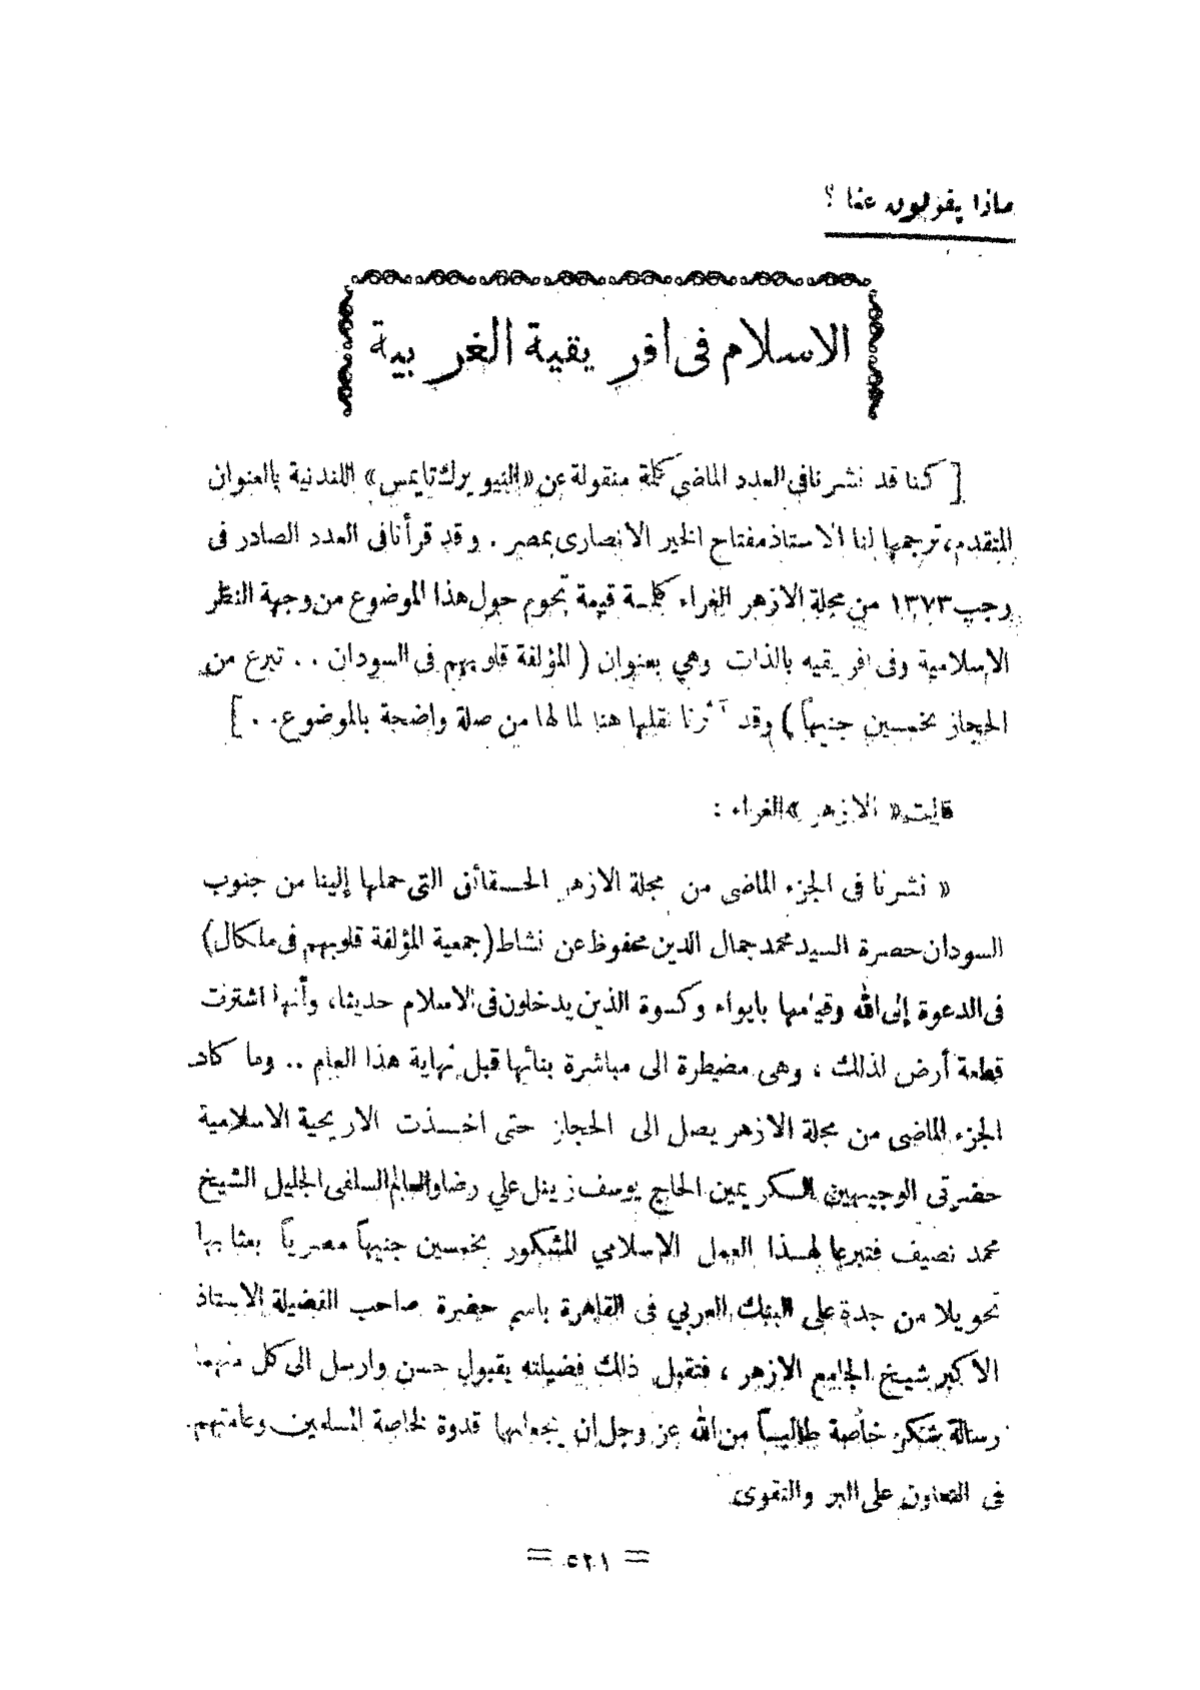 ماذا يقولون عنا ؟
الاسلام فى افريقية الغربية
[ كنا قد نشرنا فى العدد الماضي كلمة منقولة عن «النيويرك تايمس» اللندنية بالعنوان
المتقدم، ترجمها لنا الاستاذ مفتاح الخير الانصارى بمصر . وقد قرأنا فى العدد الصادر فى
رجب ١٣٧٣ من مجلة الازهر الغراء كلمة قيمة تحوم حول هذا الموضوع من وجهة النظر
الاسلامية وفى افريقيه بالذات وهي بعنوان ( المؤلفة قلوبهم فى السودان . . تبرع من
الحجاز بخمسين جنيهاً ) وقد آثرنا نقلها هنا لما لها من صلة واضحة بالموضوع . . ]
قالت « الازهر » الغراء :
« نشرنا فى الجزء الماضى من مجلة الازهر الحقائق التى حملها إلينا من جنوب
السودان حضرة السيد محمد جمال الدين محفوظ عن نشاط (جمعية المؤلفة قلوبهم فى ملكال)
فى الدعوة إلى الله وقيامها بايواء وكسوة الذين يدخلون فى الاسلام حديثا، وأنها اشترت
قطعة أرض لذلك ، وهى مضطرة الى مباشرة بنائها قبل نهاية هذا العام .. وما كاد
الجزء الماضى من مجلة الازهر يصل الى الحجاز حتى اخذت الاريحية الاسلامية
حضرتى الوجيهين السكريمين الحاج يوسف زينل علي رضا والعالم السلفى الجليل الشيخ
محمد نصيف فتبرعا لهذا العمل الاسلامي المشكور بخمسين جنيهاً مصرياً بعثا بها
تحويلا من جدة على البنك العربي فى القاهرة باسم حضرة صاحب الفضيلة الاستاذ
الاكبر شيخ الجامع الازهر ، فتقبل ذلك فضيلته بقبول حسن وارسل الى كل منهما
رسالة شكر خاصة طالباً من الله عز وجل ان يجعلهما قدوة لخاصة المسلمين وعامتهم
فى التعاون على البر والتقوى
= ٥٢١ =